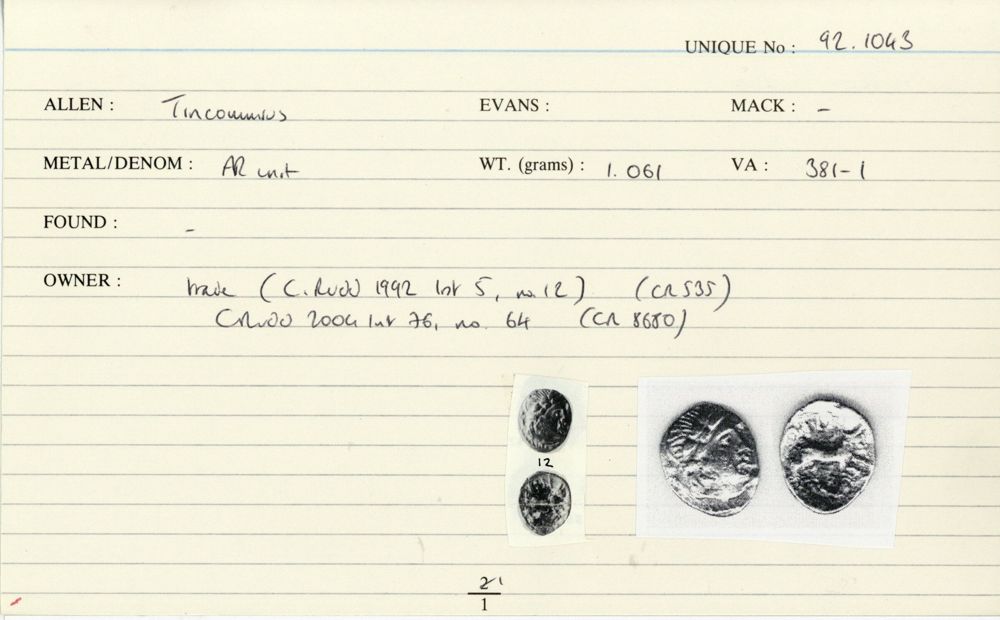 UNIQUE No : 92.1043
ALLEN : Tincommius EVANS : MACK : –
METAL/DENOM : AR unit WT. (grams) : 1.061 VA : 381-1
FOUND : –
OWNER : trade (C. Rudd 1992 list 5, no. 12) (CR 535)
C Rudd 2004 list 76, no. 64 (CR 8680)
12
21
1